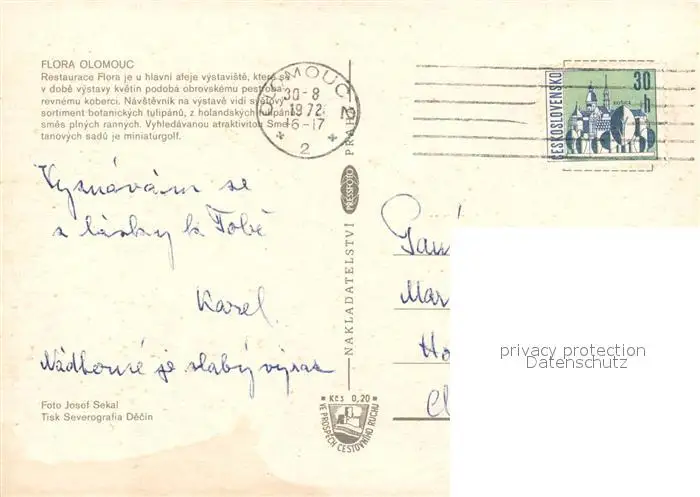 FLORA OLOMOUC
Restaurace Flora je u hlavní aleje výstaviště, které se
v době výstavy květin podobá obrovskému pestroba-
revnému koberci. Návštěvník na výstavě vidí světový
sortiment botanických tulipánů, z holandských tulipánů
směs plných ranných. Vyhledávanou atraktivitou Sme-
tanových sadů je miniaturgolf.
OLOMOUC 2
30-8
1972
16-17
2
ČESKOSLOVENSKO
30
h
Vyznávám se
z lásky k Tobě
Karel
Nádherné je slabý výraz
NAKLADATELSTVÍ PRESSFOTO PRAHA
Paní
Mar
Ho
privacy protection
Datenschutz
Foto Josef Sekal
Tisk Severografia Děčín
Kčs 0,20
VE PROSPĚCH CESTOVNÍHO RUCHU